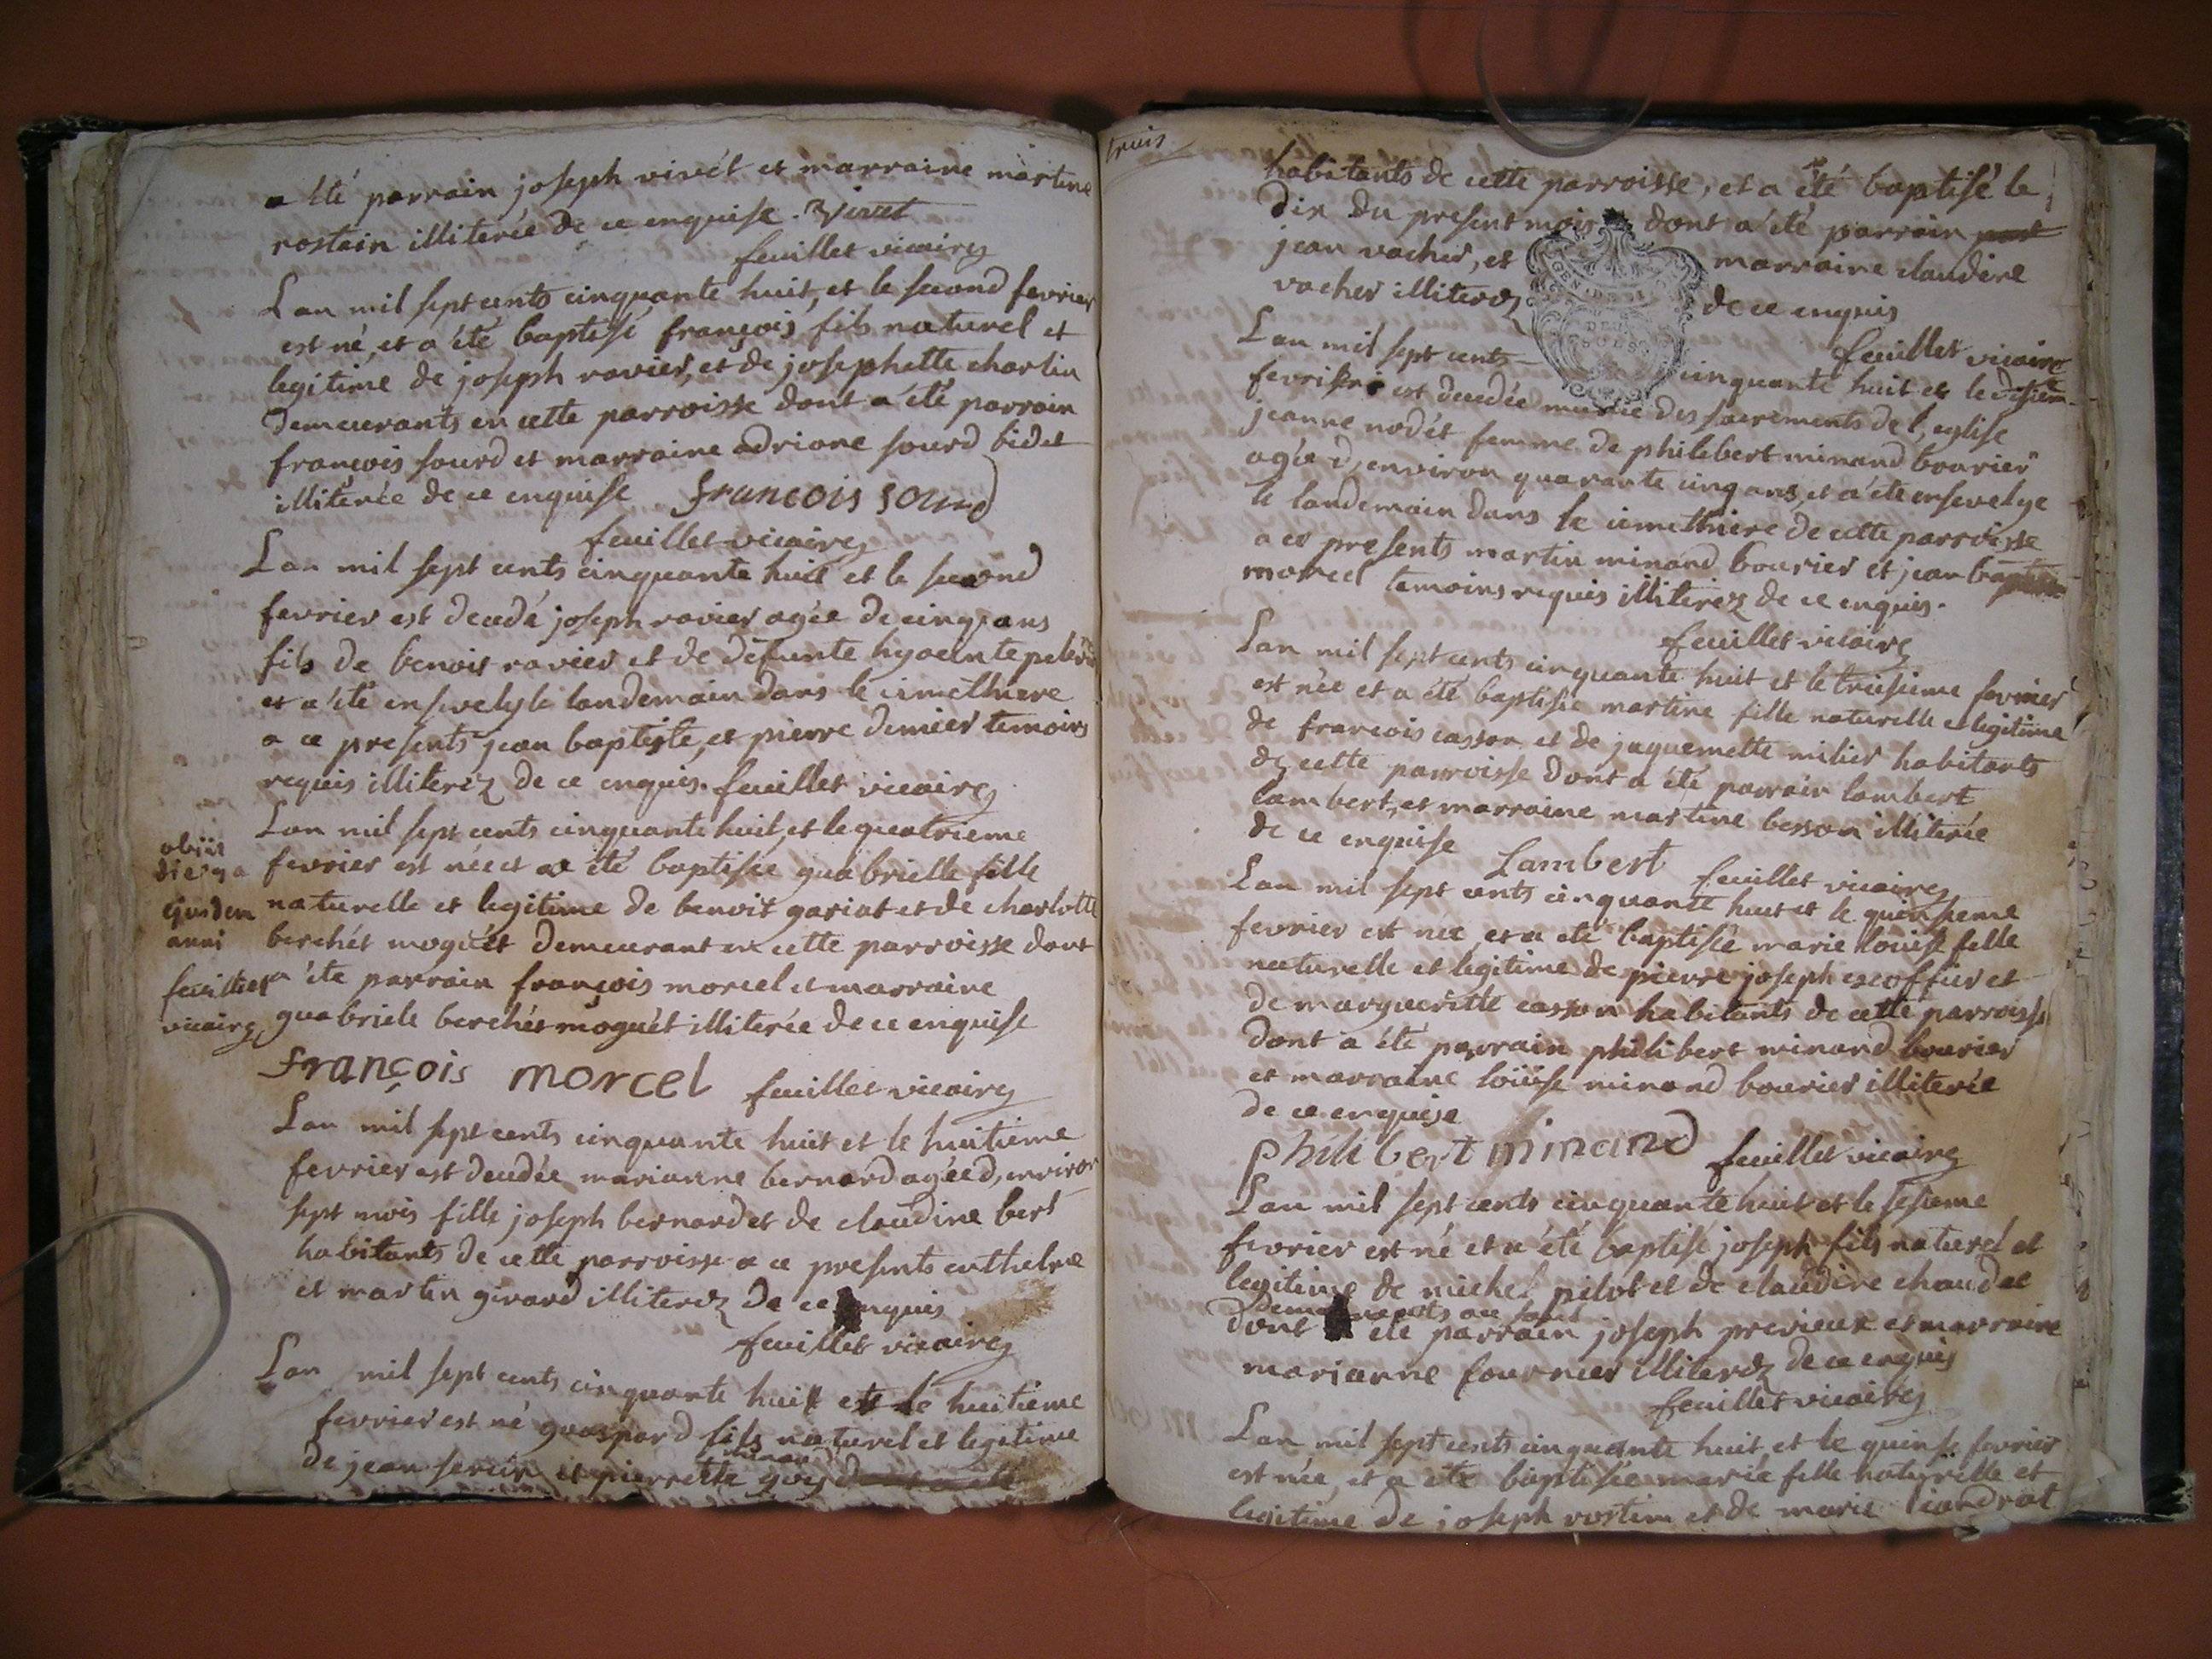 a été parrain joseph vivét et marraine martine
rostain illiterée de ce enquise. Vivet
feuillet vicaire
Lan mil sept cents cinquante huit, et le second fevrier
est né, et a été baptisé françois fils naturel et
legitime de joseph ravier, et de josephette charlin
demeurants en cette parroisse dont a été parrain
françois sourd et marraine adriane sourd bidet
illiterée de ce enquise françois sourd
feuillet vicaire
Lan mil sept cents cinquante huit et le second
fevrier est decedé joseph ravier agée de cinq ans
fils de benoit ravier et de defunte hyacinte
et a été ensevely le landemain dans le cimethiere
a ce presents jean baptiste, et pierre demier temoins
requis illiterez de ce enquis. feuillet vicaire
Lan mil sept cents cinquante huit, et le quatrieme
fevrier est née et a été baptisée guabrielle fille
naturelle et legitime de benoit gariot et de charlotte
berchét moguét demeurant en cette parroisse dont
a éte parrain françois morcel et marraine
guabriele berchét moguét illiterée de ce enquise
obiit
die
ejusdem
anni
feuillet
vicaire
françois morcel feuillet vicaire
Lan mil sept cents cinquante huit et le huitieme
fevrier est decedée marianne bernard agée d,environ
sept mois fille joseph bernard et de claudine bert
habitants de cette parroisse a ce presents
et martin girard illiterez de ce enquis
feuillet vicaire
Lan mil sept cents cinquante huit et le huitieme
fevrier est né guaspard fils naturel et legitime
de jean et pierrette
habitants de cette parroisse, et a été baptisé le
dix du present mois dont a été parrain
jean vacher, et marraine claudine
vacher illiterez de ce enquis
feuillet vicaire
Lan mil sept cents cinquante huit et le
fevrier est decedée munie des sacrements de l,eglise
jeanne nodét femme de philebert minand bourier
agée d,environ quarante cinq ans, et a été ensevelye
le landemain dans le cimethiere de cette parroisse
a ce presents martin minand bourier et jean baptiste
morcel temoins requis illiterez de ce enquis.
feuillet vicaire
Lan mil sept cents cinquante huit et le treisieme fevrier
est née et a été baptisée martine fille naturelle et legitime
de francois casson et de jaquemette milier habitants
de cette parroisse dont a été parrain lambert
lambert, et marraine martine besson illiterée
de ce enquise Lambert feuillet vicaire
Lan mil sept cents cinquante huit et le quinsieme
fevrier est née, et a eté baptisée marie louise fille
naturelle et legitime de pierre joseph excoffier et
de marguerite casson habitants de cette parroisse
dont a été parrain philibert minand bourier
et marraine loüise minand bourier illiterée
de ce enquise
philibert minand feuillet vicaire
Lan mil sept cents cinquante huit et le sesieme
fevrier est né et a été baptisé joseph fils naturel et
legitime de michel pilot et de claudine
dont a été parrain joseph previeux et marraine
marianne fournier illiterez de ce enquis
feuillet vicaire
Lan mil sept cents cinquante huit, et le quinse fevrier
est née, et a été baptisée marie fille naturelle et
legitime de joseph et de marie